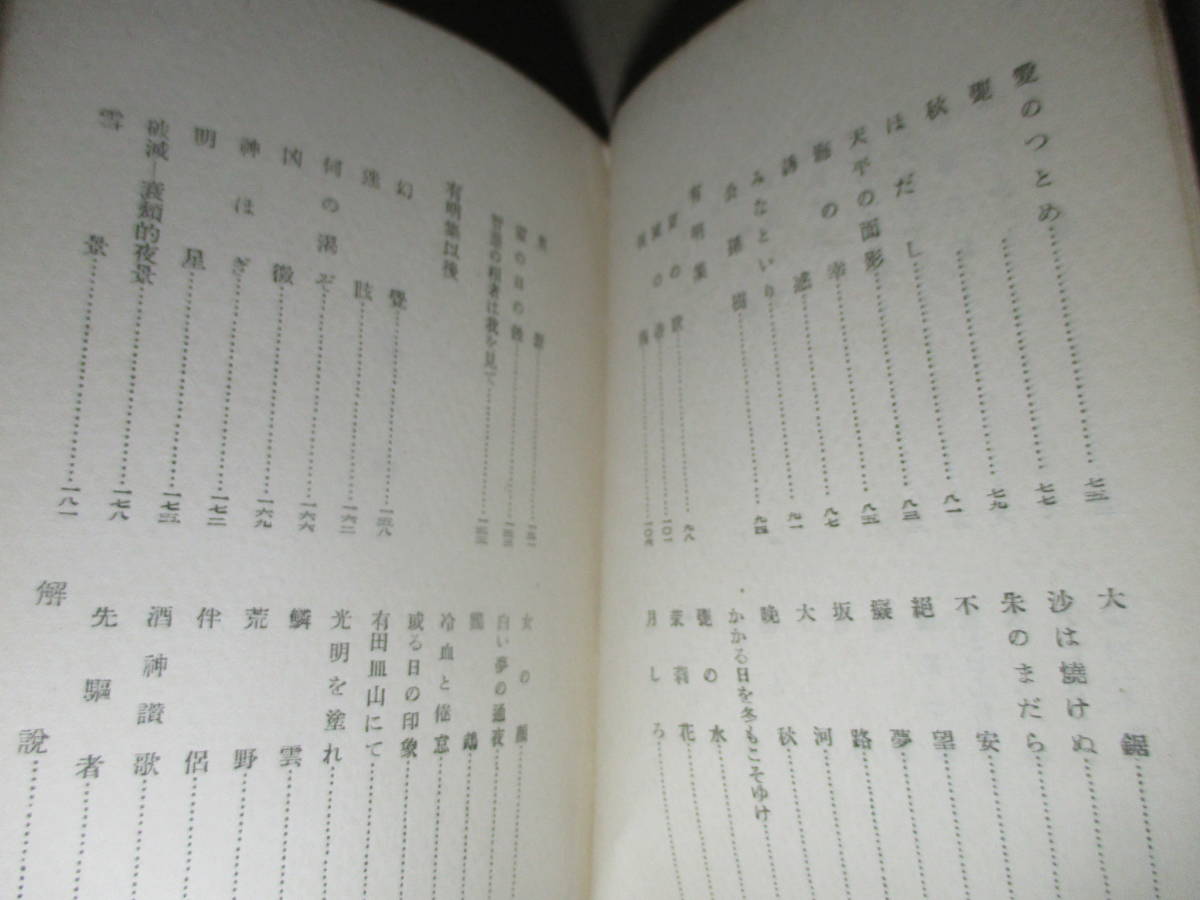 愛のつとめ……七五
甕……七七
秋……七九
ほだし……八一
天平の面影……八三
海の幸……八五
誘惑……八七
みなといり……九一
公孫樹……九四
有明集
夏の歌……九八
一〇一
一〇六
大鋸
沙は燒けぬ
朱のまだら
不安
絶望
巖夢
坂路
大河
晩秋
かかる日を冬もこそゆけ
甕の水
茉莉花
月しろ
智慧の相者は我を見て
有明集以後
幻覺……一五八
迷眩……一六二
何の渴ぞ……一六六
凶徵……一六九
神ほぎ……一七二
明星……一七五
破滅―衰頽的夜景……一七八
雪景……一八一
女の顏
白い夢の通夜
鸚鵡
冷血と倦怠
或る日の印象
有田皿山にて
光明を塗れ
鱗雲
荒野
伴侶
酒神讃歌
先驅者
解說